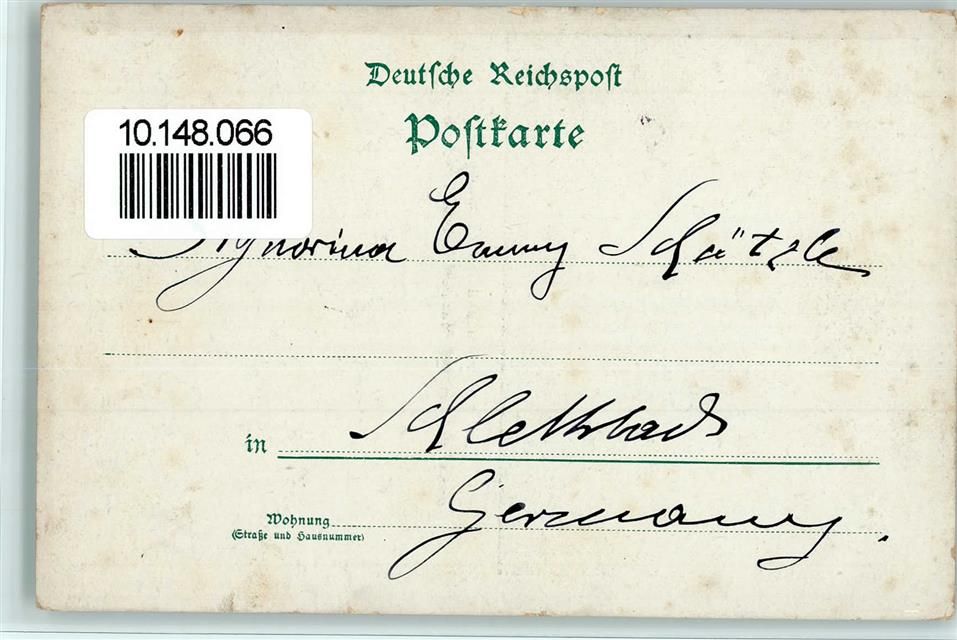 Deutsche Reichspost
Postkarte
10.148.066
Signorina Emmy Schätzle
in Schlettstadt
Germany.
Wohnung
(Straße und Hausnummer)